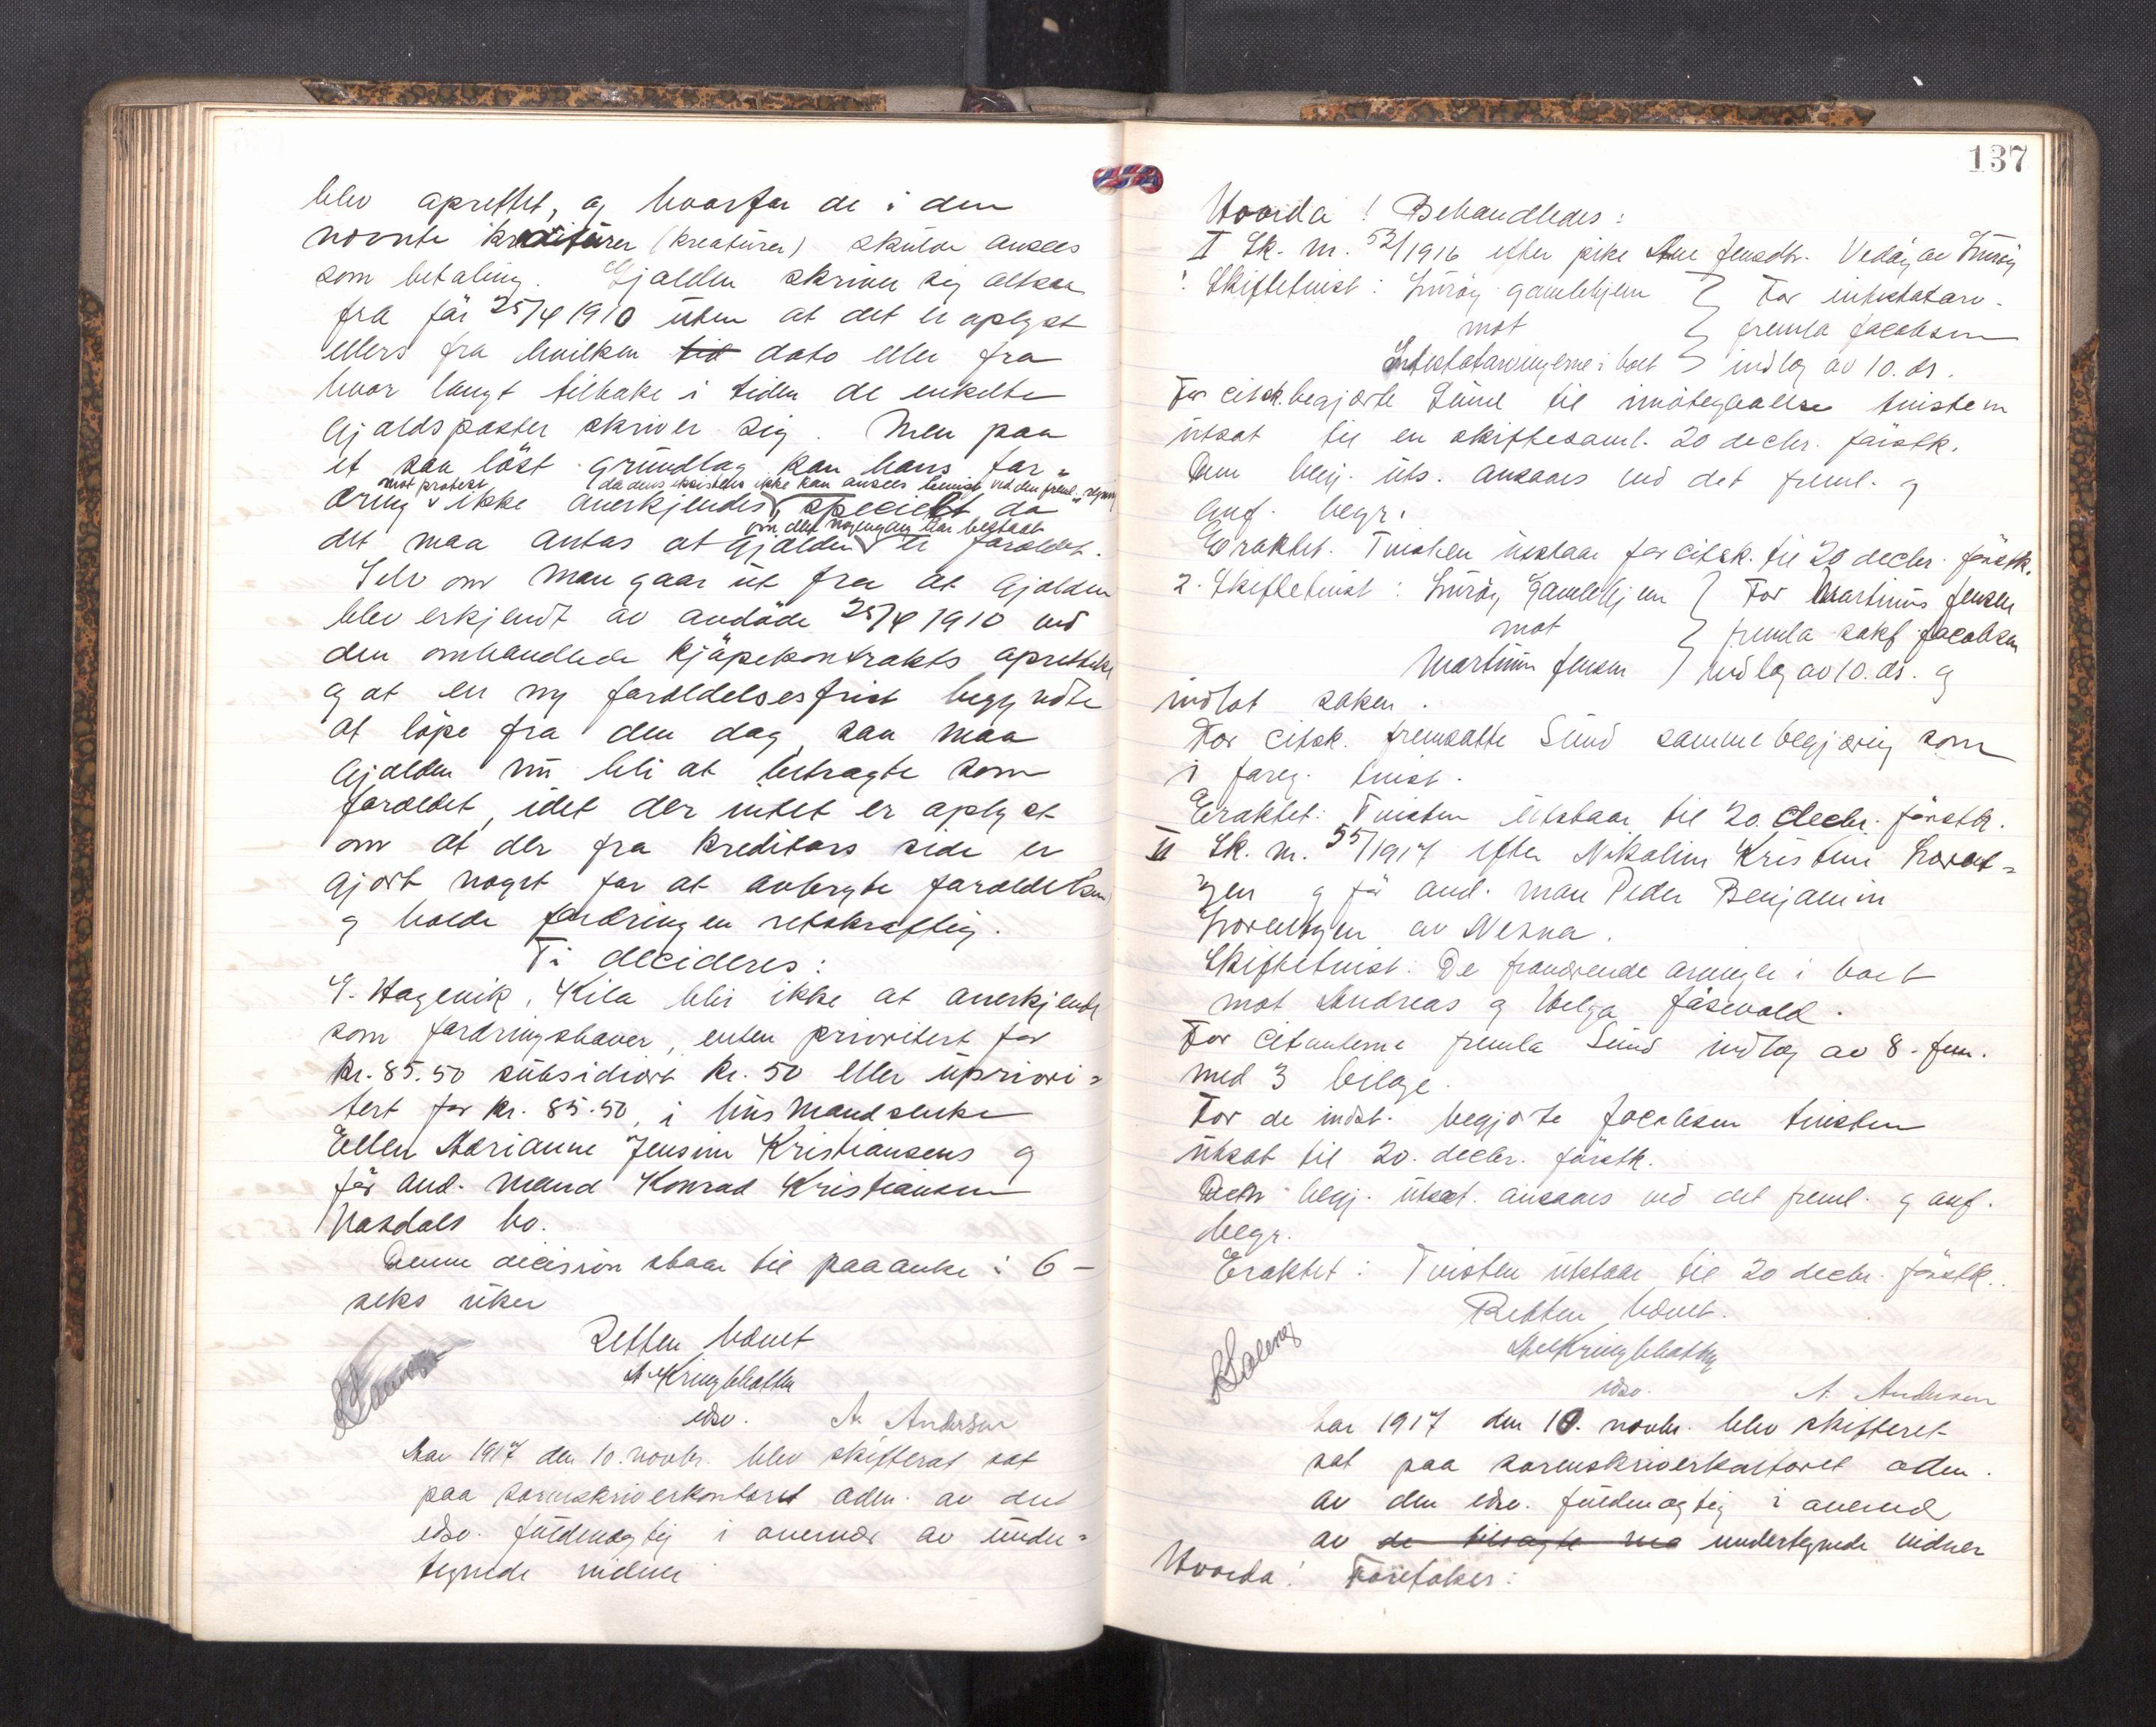 blev oprettet, og hvorfor de i den
nævnte kreaturer (kreaturer) skulde ansees
som betaling. Gjælden skriver sig altsaa
fra før 25/4 1910 uten at det er oplyst
ellers fra hvilken tid dato eller fra
hvor langt tilbake i tiden de enkelte
gjældsposter skriver sig. Men paa
et saa løst grundlag kan hans for-
mot protest da dens eksistens ikke kan ansees bevist ved den freml. regning
dring ikke anerkjendes, specielt da
om den nogengang har bestaat
det maa antas at gjælden er forældet.
Selv om man gaar ut fra at gjælden
blev erkjendt av avdøde 25/4 1910 ved
den omhandlede kjøpekontrakts oprettelse
og at en ny forældelsesfrist begyndte
at løpe fra den dag, saa maa
gjælden nu bli at betragte som
forældet, idet der intet er oplyst
om at der fra kreditors side er
gjort noget for at avbryte forældelsen
og holde fordringen retskraftig.
Ti decideres:
Hagenik, Kila blir ikke at anerkjende
som fordringshaver, enten prioritert for
kr. 85.50 subsidiært kr. 50 eller upriori-
tert for kr. 85.50, i husmandsenke
Ellen Adrianne Jensine Kristiansens og
før avd. mand Konrad Kristiansen
Nasdals bo.
Denne decision staar til paaanke i 6-
seks uker
Retten hævet
A. Kringlebotten
edsv. A. Andersen
Aar 1917 den 10. novbr. blev skifteret sat
paa sorenskriverkontoret adm. av den
edsv. fuldmægtig i overvær av under-
tegnede vidner
137
Hvorda! Behandledes:
I Sk. nr. 52/1916 efter pike Ane Jensdtr. Vedøy av Lurøy
1. Skiftetvist: Lurøy gamlehjem } For intestatarv.
mot } fremla Jacobsen
Intestatarvingerne i boet } indlæg av 10. ds.
For citsk. begjærte Sund til imøtegaaelse tvisten
utsat til en skiftesaml. 20 decbr. førstk.
Den begj. uts. ansaaes ved det freml. og
anf. begr.
Eraktet. Tvisten utstaar for citsk. til 20 decbr. førstk.
2. Skiftetvist: Lurøy Gamlehjem } For Martinus Jensen
mot } fremla sakf Jacobsen
Martinus Jensen } indlæg av 10. ds. og
indlot saken.
For citsk. fremsatte Sund samme begjæring som
i foreg. tvist.
Eraktet: Tvisten utstaar til 20. decbr. førstk.
II Sk. nr. 55/1917 efter Nikoline Kristine Lorent-
zen og før avd. man Peder Benjamin
Lorentzen av Nesna.
Skiftetvist: De fraværende arvinger i boet
mot Andreas og Helga Jøsevold.
For citanterne fremla Sund indlæg av 8. ds.
med 3 bilage.
For de indst. begjærte Jacobsen tvisten
utsat til 20. decbr. førstk.
Den begj. utsæt. ansaaes ved det freml. og anf.
begr.
Eraktet: Tvisten utstaar til 20 decbr. førstk.
Retten hævet.
A. Kringlebotten
edsv. A. Andersen
Aar 1917 den 10. novbr. blev skifteret
sat paa sorenskriverkontoret adm.
av den edsv. fuldmægtig i overvær
av de tilsagte undertegnede vidner
Hvorda! Foretokes: